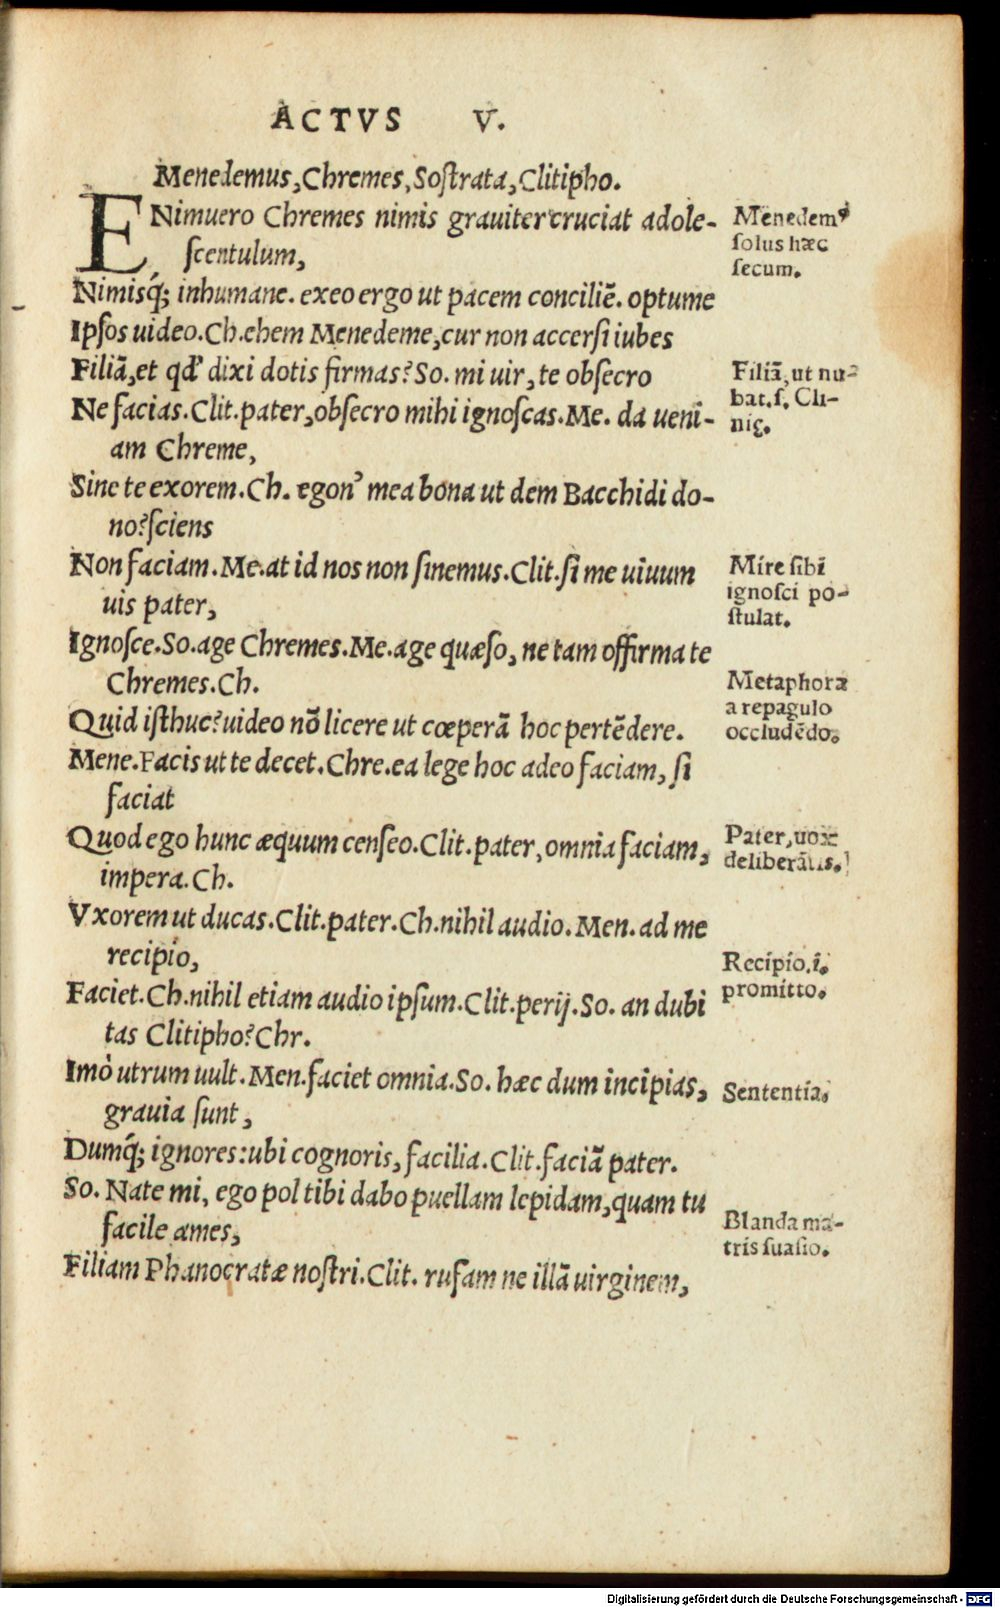 ACTVS V.
Menedemus, Chremes, Sostrata, Clitipho.
ENimuero Chremes nimis grauiter cruciat adole-
scentulum,
Nimisq́; inhumane. exeo ergo ut pacem conciliẽ. optume
Ipsos uideo. Ch. ehem Menedeme, cur non accersi iubes
Filiã, et qđ dixi dotis firmas? So. mi uir, te obsecro
Ne facias. Clit. pater, obsecro mihi ignoscas. Me. da ueni-
am Chreme,
Sine te exorem. Ch. egon' mea bona ut dem Bacchidi do-
no? sciens
Non faciam. Me. at id nos non sinemus. Clit. si me uiuum
uis pater,
Ignosce. So. age Chremes. Me. age quæso, ne tam offirma te
Chremes. Ch.
Quid isthuc? uideo nõ licere ut cœperã hoc pertẽdere.
Mene. Facis ut te decet. Chre. ea lege hoc adeo faciam, si
faciat
Quod ego hunc æquum censeo. Clit. pater, omnia faciam,
impera. Ch.
Vxorem ut ducas. Clit. pater. Ch. nihil audio. Men. ad me
recipio,
Faciet. Ch. nihil etiam audio ipsum. Clit. perij. So. an dubi
tas Clitipho? Chr.
Imò utrum uult. Men. faciet omnia. So. hæc dum incipias,
grauia sunt,
Dumq́; ignores: ubi cognoris, facilia. Clit. faciã pater.
So. Nate mi, ego pol tibi dabo puellam lepidam, quam tu
facile ames,
Filiam Phanocratæ nostri. Clit. rufam ne illã uirginem,
Menedemꝰ
solus hæc
secum.
Filiã, ut nu-
bat. s. Cli-
nię.
Mire sibĩ
ignosci po-
stulat.
Metaphora
a repagulo
occludẽdo.
Pater, uox
deliberãtis.
Recipio. i.
promitto.
Sententia.
Blanda ma-
tris suasio.
Digitalisierung gefördert durch die Deutsche Forschungsgemeinschaft - DFG